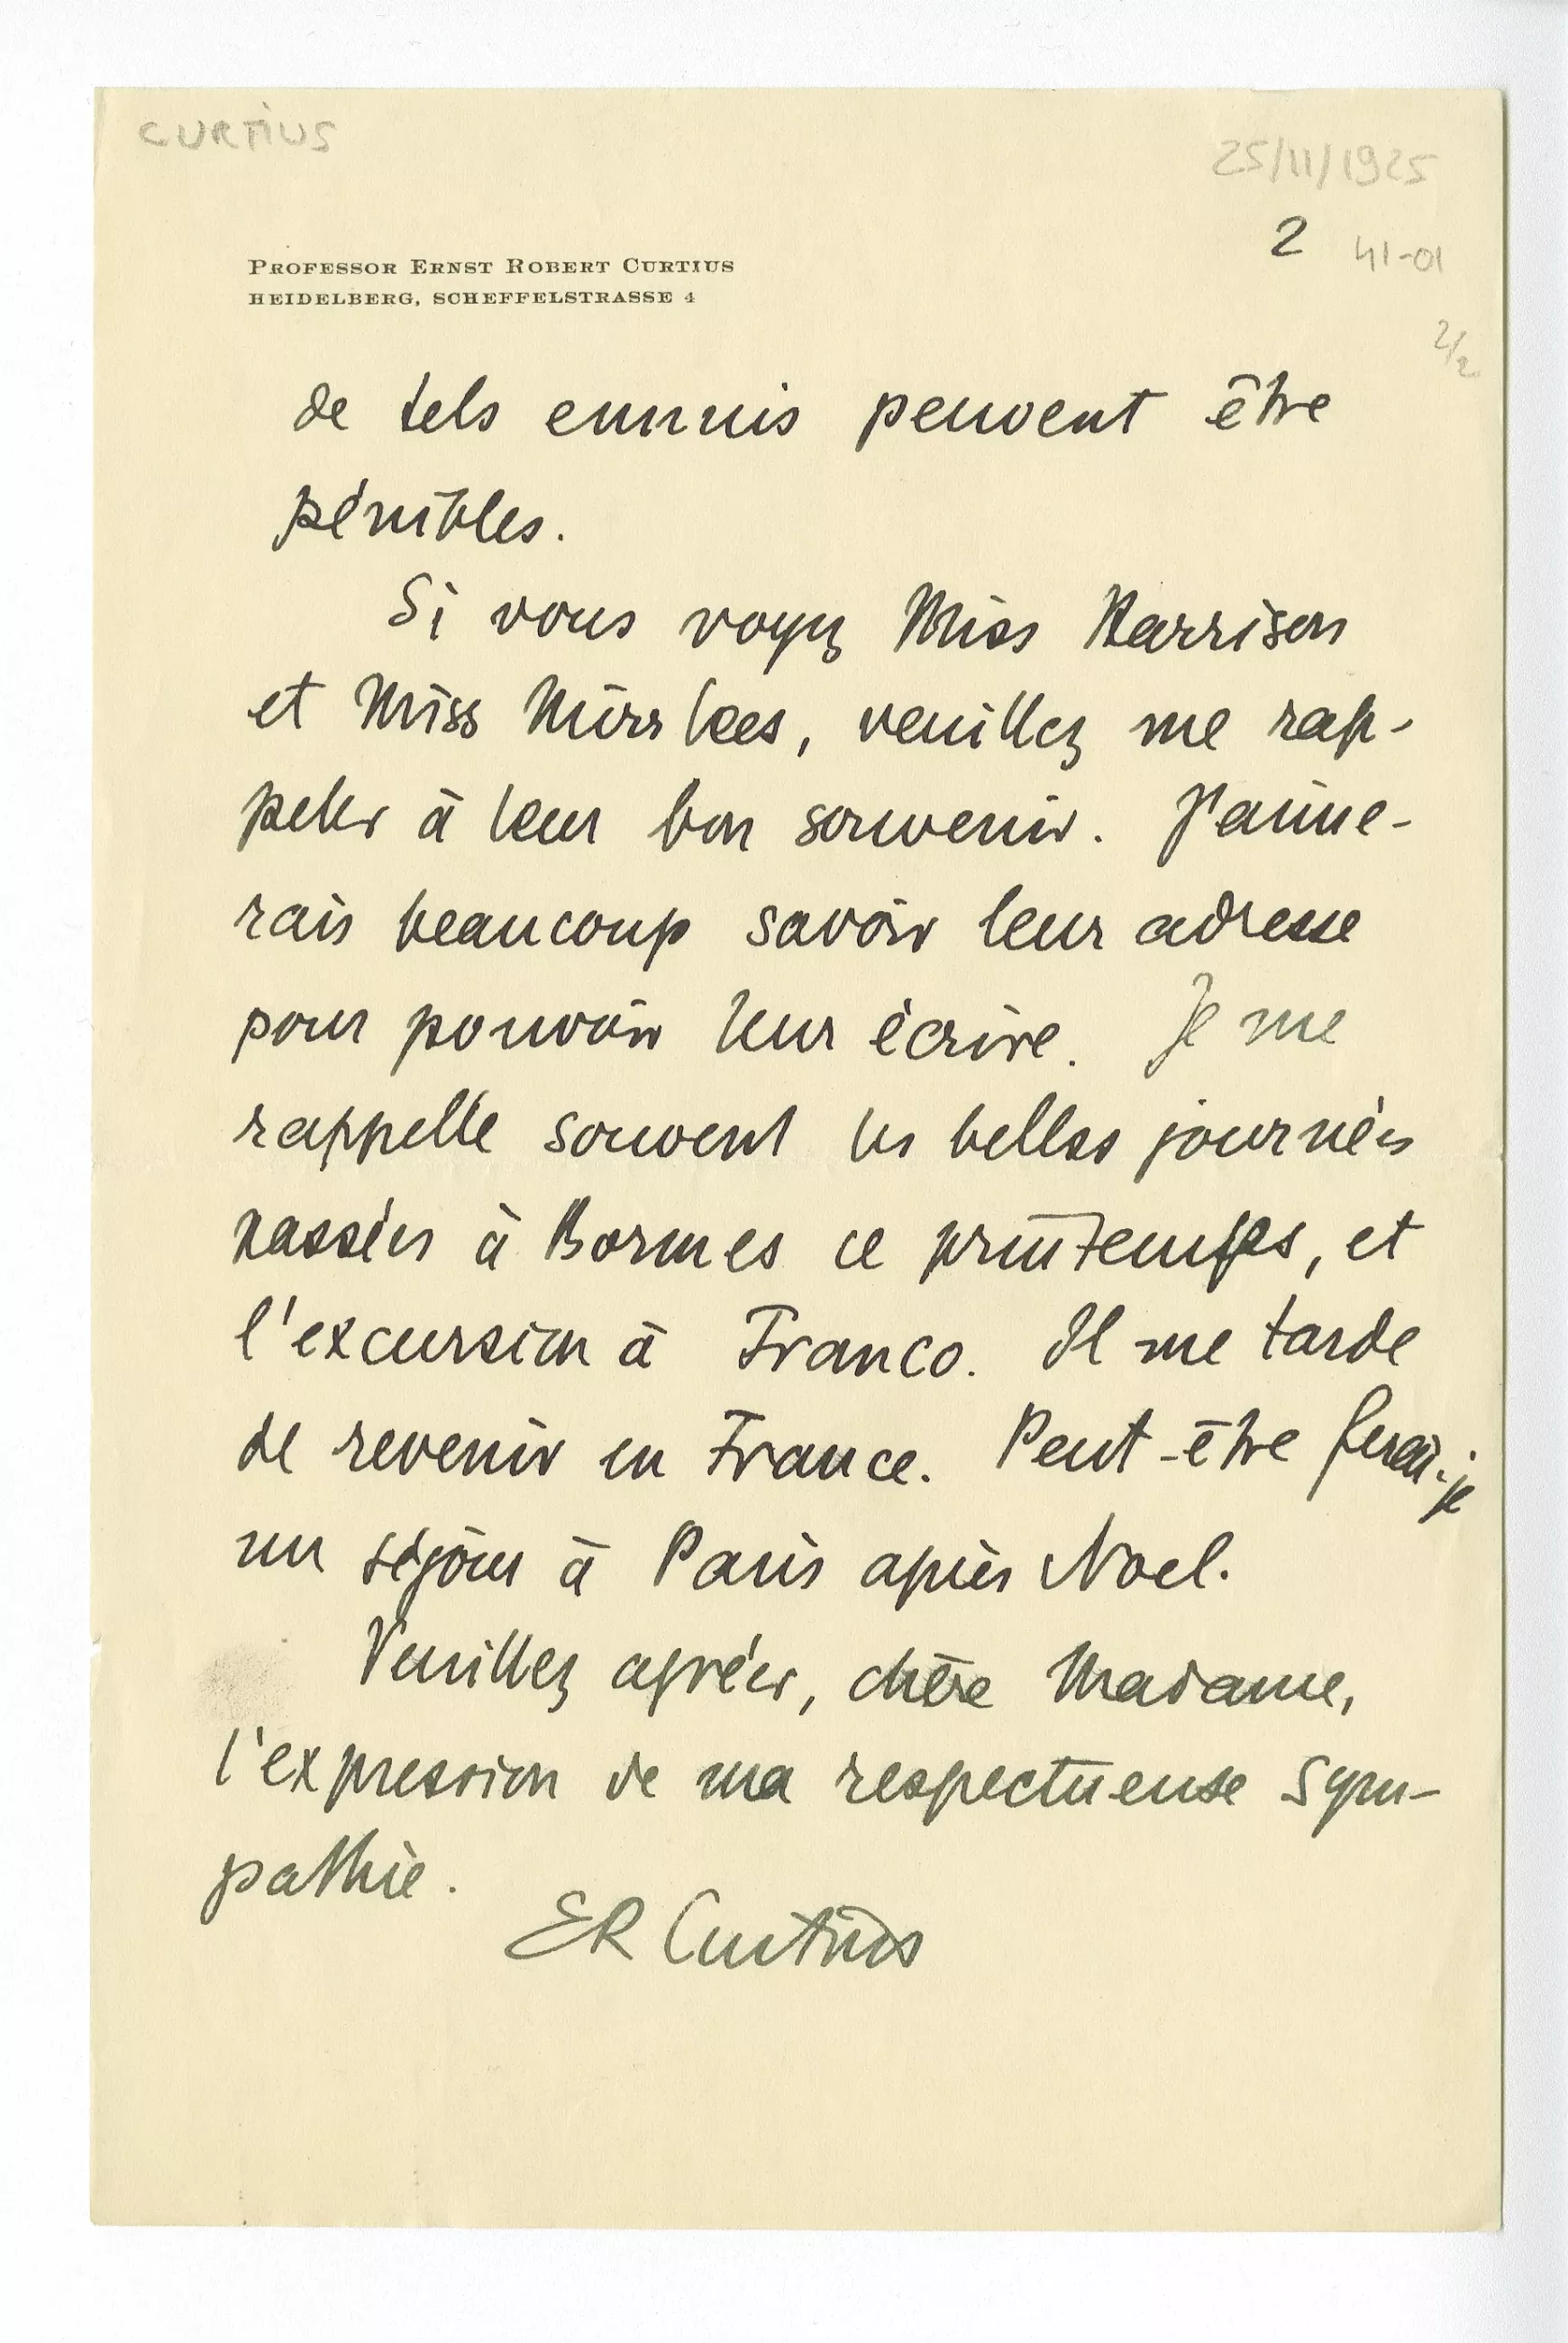 CURTIUS
25/11/1925
2 41-01
2/2
PROFESSOR ERNST ROBERT CURTIUS
HEIDELBERG, SCHEFFELSTRASSE 4
de tels ennuis peuvent être
pénibles.
Si vous voyez Miss Harrison
et Miss Mirrlees, veuillez me rap-
peler à leur bon souvenir. J'aime-
rais beaucoup savoir leur adresse
pour pouvoir leur écrire. Je me
rappelle souvent les belles journées
passées à Bormes ce printemps, et
l'excursion à Franco. Il me tarde
de revenir en France. Peut-être ferai-je
un séjour à Paris après Noel.
Veuillez agréer, chère Madame,
l'expression de ma respectueuse sym-
pathie.
ER Curtius